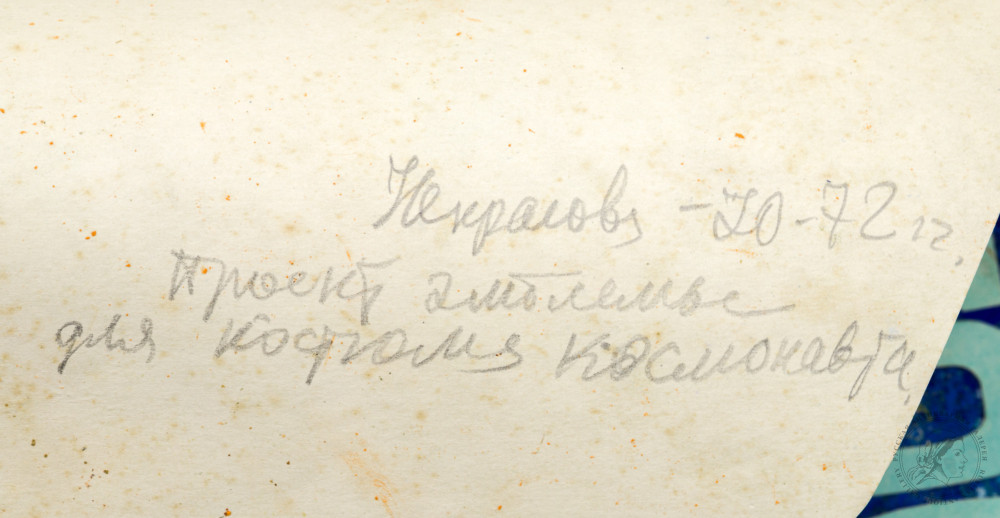 Некрасова - 70-72 гг.
Проект эмблемы
для костюма космонавта.